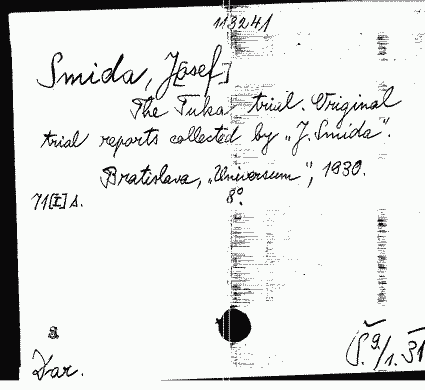 113241
Smida, J[osef]
The Tuka trial. Original
trial reports collected by „J. Smida".
Bratislava, „Universum", 1930.
71[I] s. 8°.
a
Dar.
Š. 9/1. 31